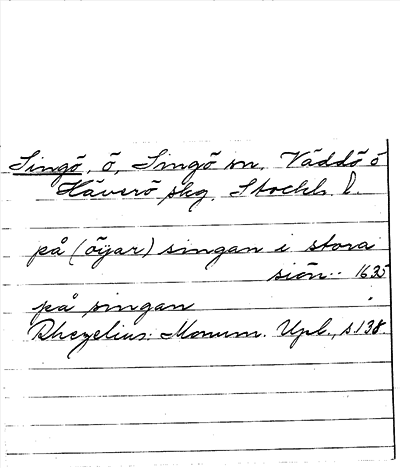 Singö, ö, Singö sn, Väddö o
Häverö skg, Stockh. l.
på (öyar) singan i stora
siön.. 1635
på singan
Rhezelius: Monum. Upl., s. 138.